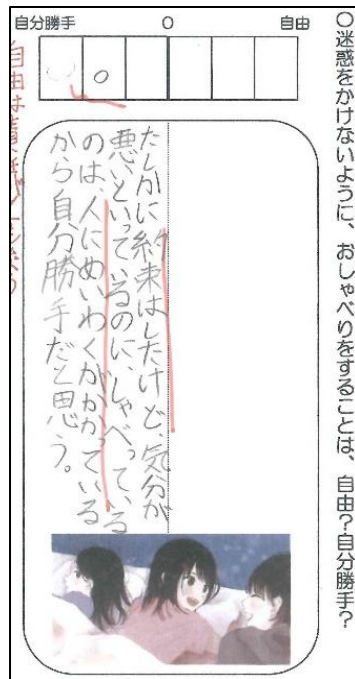 ○迷惑をかけないように、おしゃべりをすることは、自由?自分勝手?
自分勝手 0 自由
たしかに約束はしたけど、気分が
悪いといっているのに、しゃべっている
のは、人にめいわくがかかっている
から自分勝手だと思う。
自由は